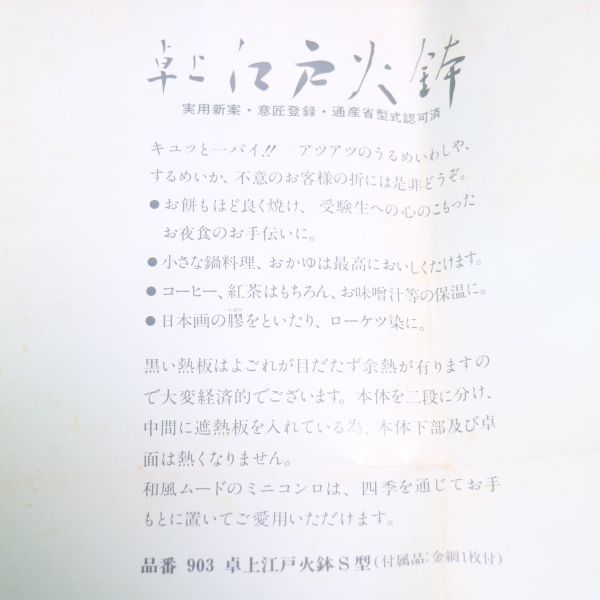 卓上江戸火鉢
実用新案・意匠登録・通産省型式認可済
キュッと一パイ!! アツアツのうるめいわしや、
するめいか、不意のお客様の折には是非どうぞ。
●お餅もほど良く焼け、受験生への心のこもった
お夜食のお手伝いに。
●小さな鍋料理、おかゆは最高においしくたけます。
●コーヒー、紅茶はもちろん、お味噌汁等の保温に。
●日本画の膠をといたり、ローケツ染に。
黒い熱板はよごれが目だたず余熱が有りますの
で大変経済的でございます。本体を二段に分け、
中間に遮熱板を入れている為、本体下部及び卓
面は熱くなりません。
和風ムードのミニコンロは、四季を通じてお手
もとに置いてご愛用いただけます。
品番 903 卓上江戸火鉢S型(付属品:金網1枚付)